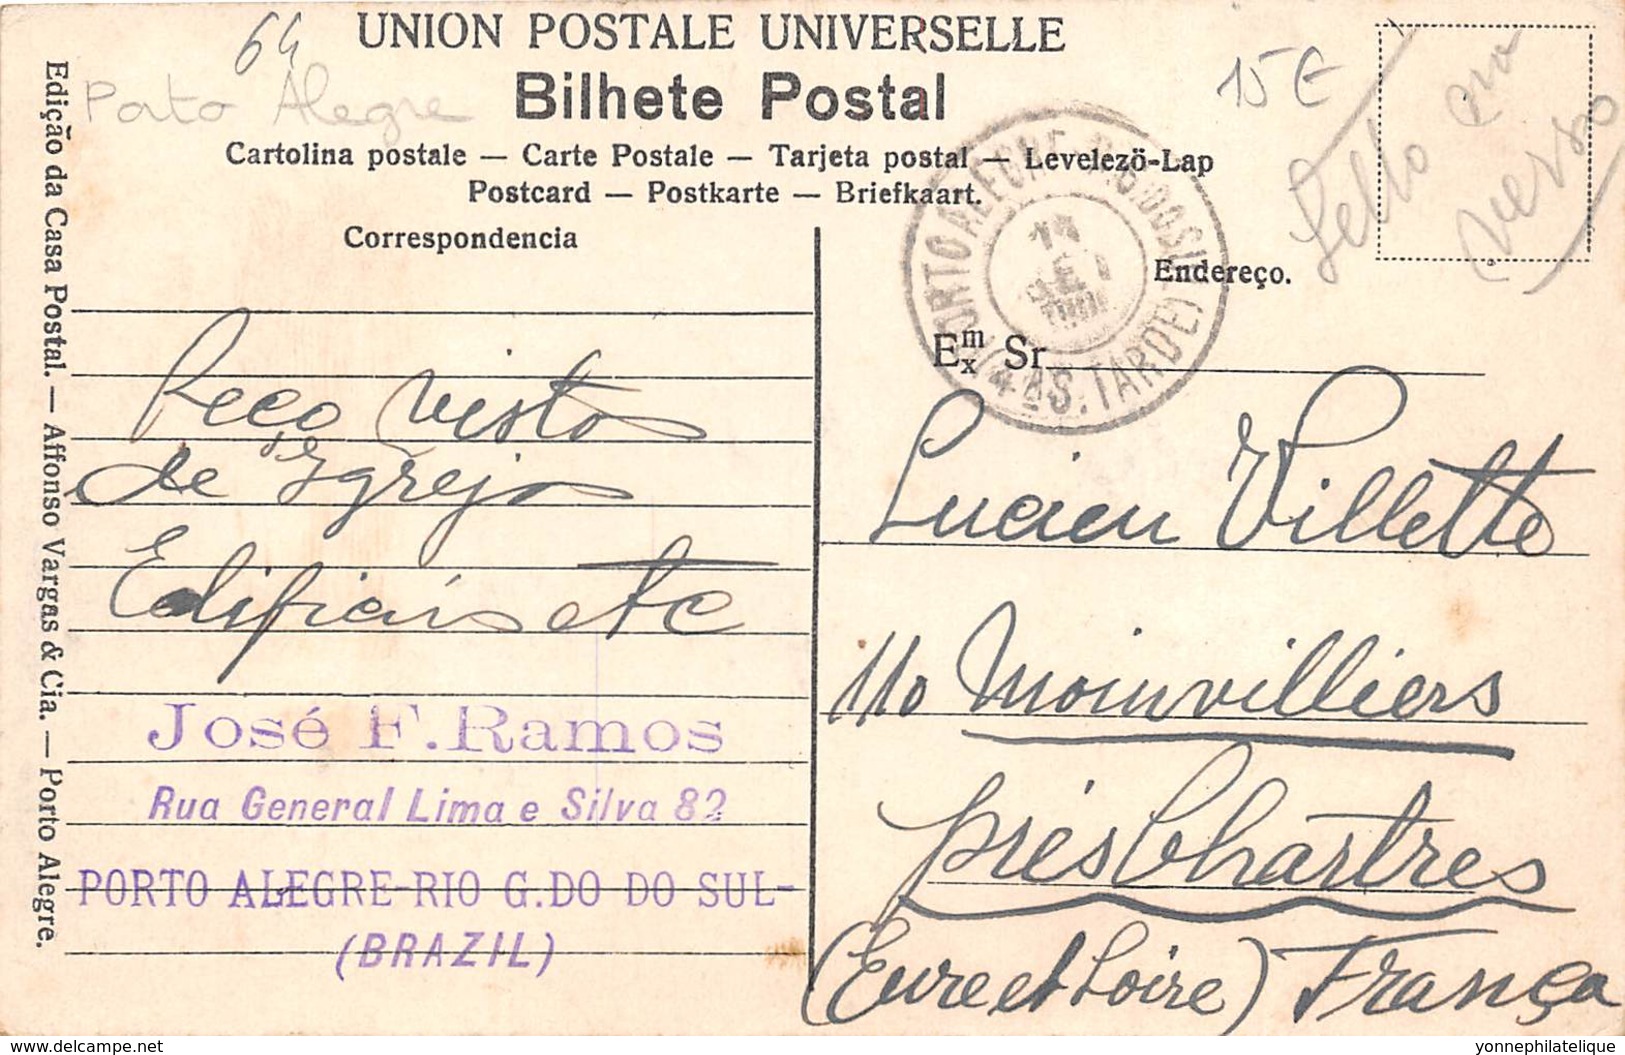 64
UNION POSTALE UNIVERSELLE
Porto Alegre
Bilhete Postal
15 €
Sello no
verso
Cartolina postale — Carte Postale — Tarjeta postal — Levelezö-Lap
Postcard — Postkarte — Briefkaart.
Correspondencia
Endereço.
PORTO ALEGRE
4 AS. TARDE
Em
x Sr
Peço vistos
de Igrejas
Edificiais etc
José F. Ramos
Rua General Lima e Silva 82
PORTO ALEGRE-RIO G.DO DO SUL-
(BRAZIL)
Lucien Villette
110 Moinvilliers
près Chartres
(Eure et Loire) França
Edição da Casa Postal. — Affonso Vargas & Cia. — Porto Alegre.
delcampe.net
yonnephilatelique